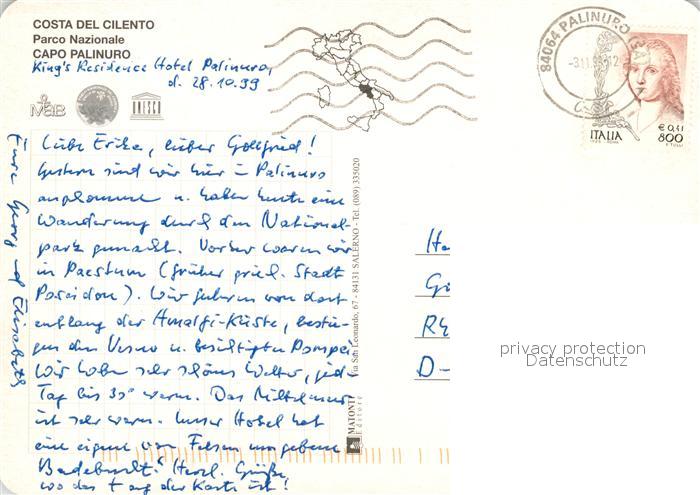 COSTA DEL CILENTO
Parco Nazionale
CAPO PALINURO
King's Residence Hotel Palinuro,
d. 28.10.99
MAB
UNESCO
84064 PALINURO
-3.11.99-12
ITALIA
€ 0,41
800
Liebe Erika, lieber Gottfried!
Gestern sind wir hier in Palinuro
angekommen u. haben heute eine
Wanderung durch den National-
park gemacht. Vorher waren wir
in Paestum (früher griech. Stadt
Poseidon). Wir fuhren von dort
entlang der Amalfi-Küste, bestie-
gen den Vesuv u. besichtigten Pompei.
Wir haben sehr schönes Wetter, jeden
Tag bis 30° warm. Das Mittelmeer
ist sehr warm. Unser Hotel hat
eine eigene von Felsen umgebene
Badebucht. Herzl. Grüße
wo das + auf der Karte ist!
Eure Georg und Elisabeth
MATONTI
Editore
Via San Leonardo, 67 - 84131 SALERNO - Tel. (089) 335020
Ha
Gi
RE
D-
privacy protection
Datenschutz